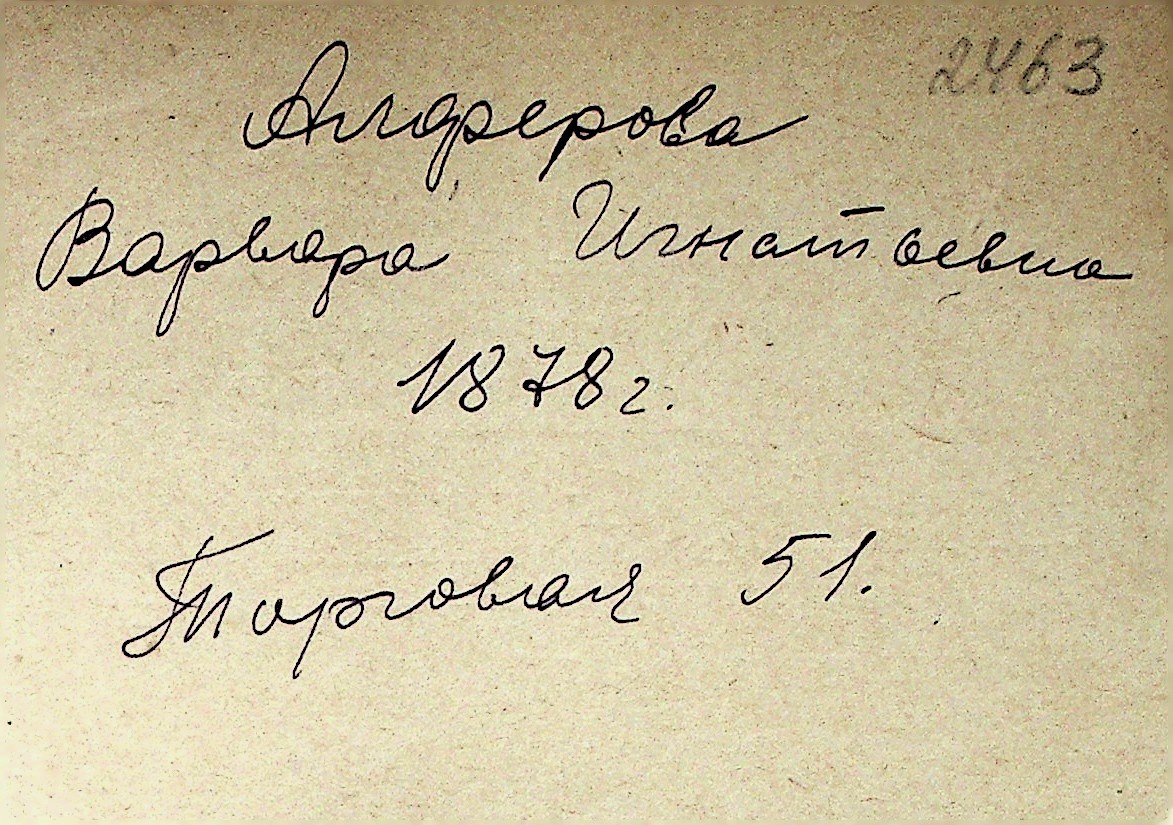 2463
Алферова
Варвара Игнатьевна
1878 г.
Торговая 51.